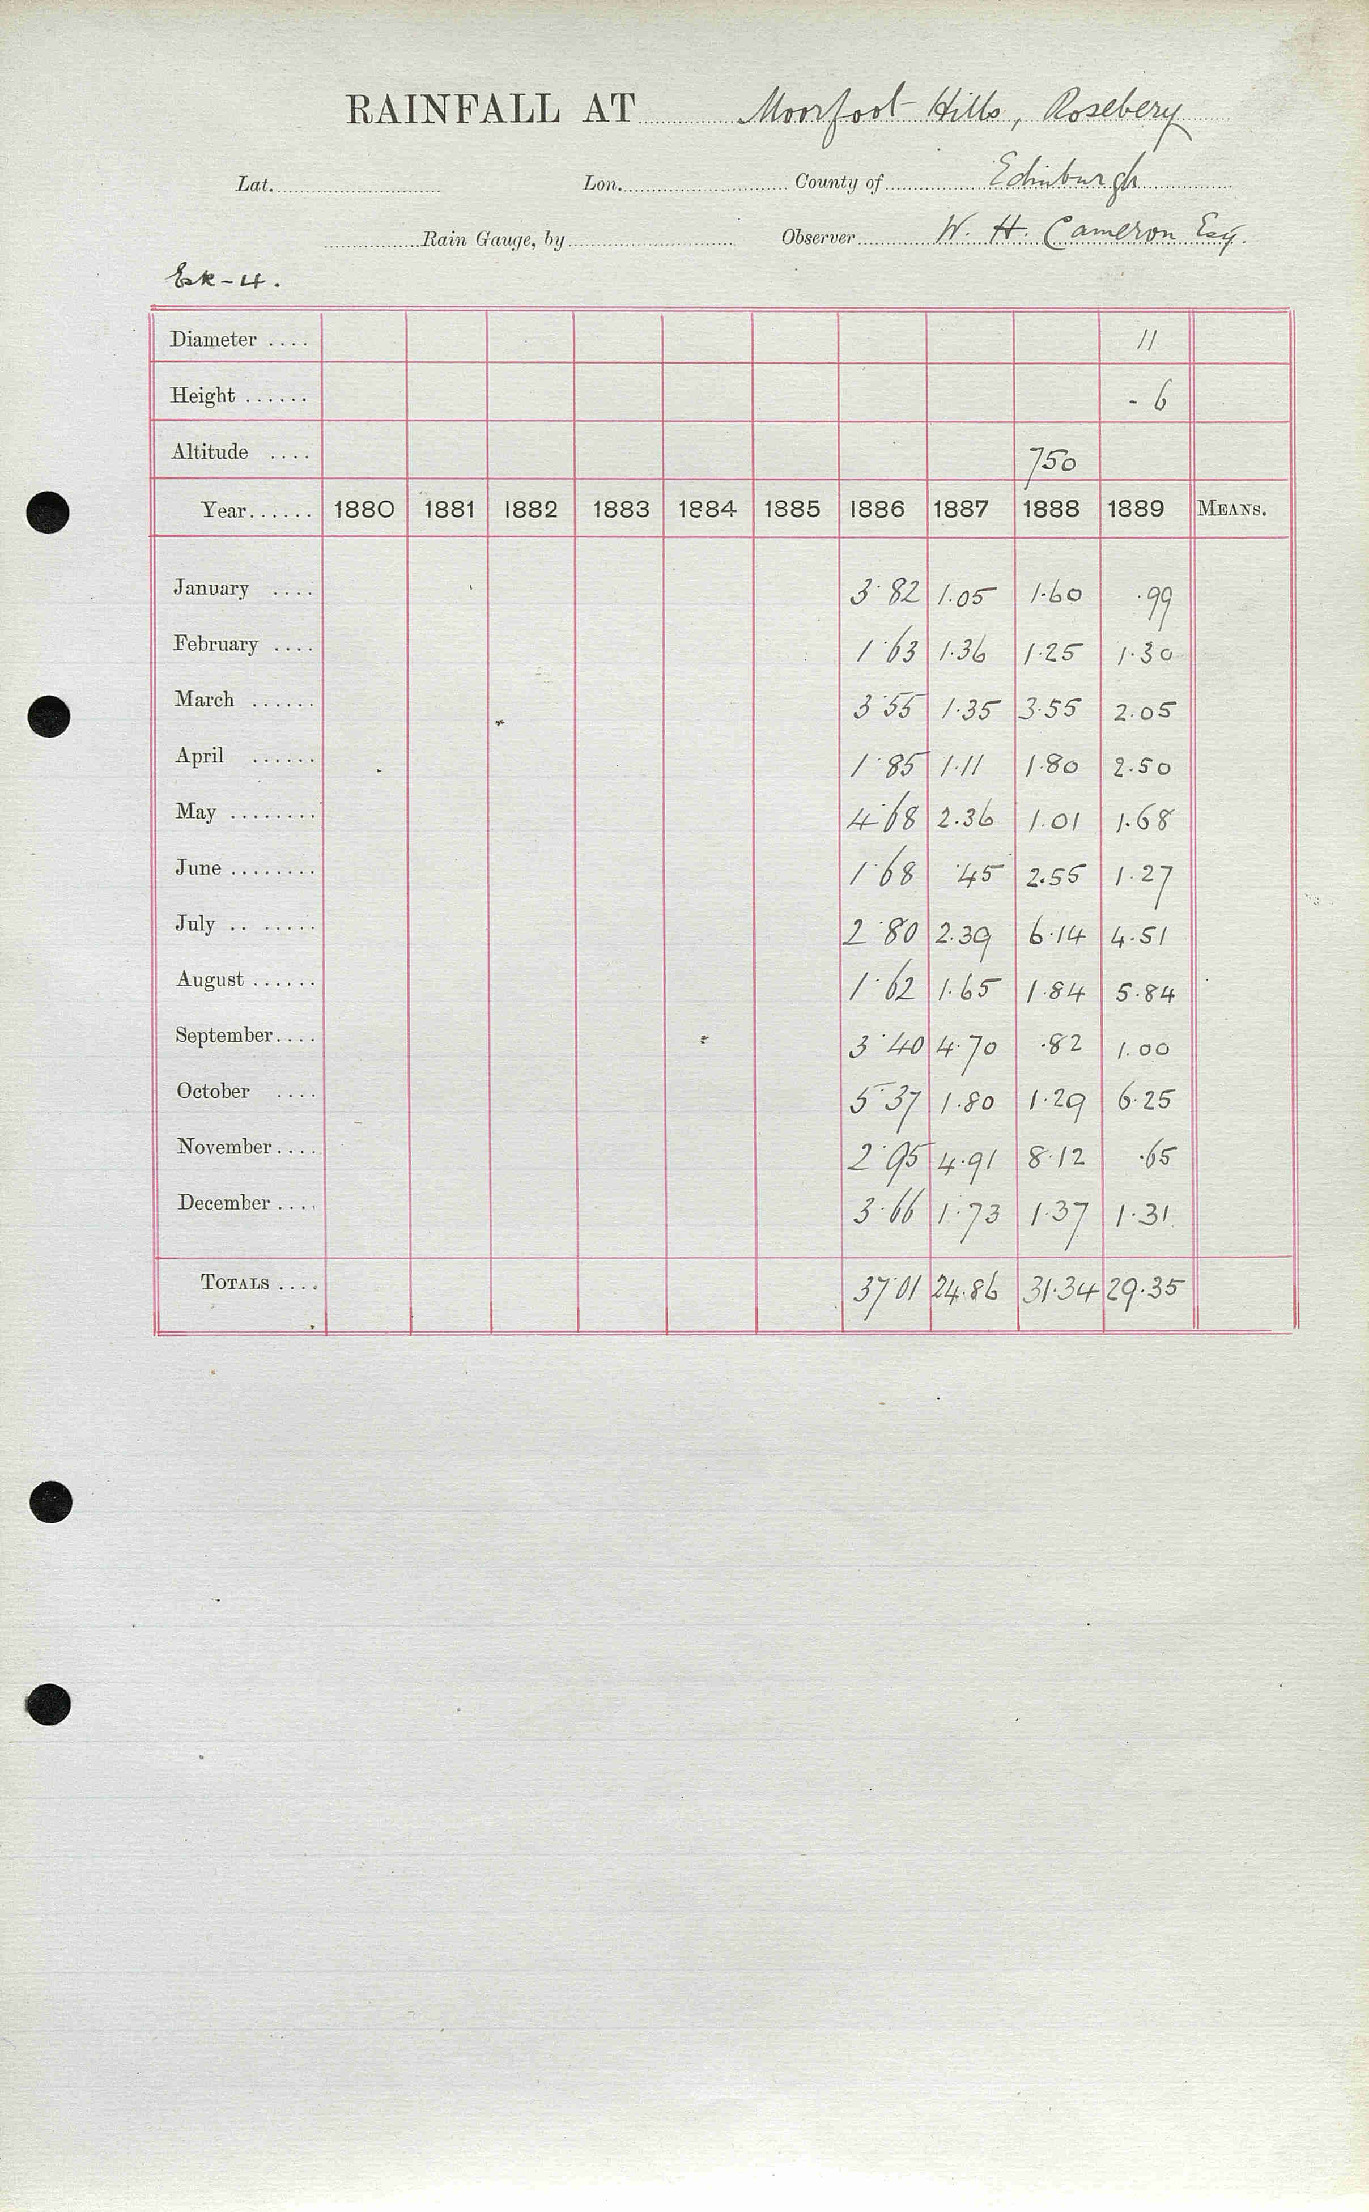 RAINFALL AT Moorfoot Hills, Rosebery
Lat. Lon. County of Edinburgh
Rain Gauge, by Observer W. H. Cameron Esq.
Esk-4.
Diameter .... 11
Height ...... - 6
Altitude .... 750
Year...... 1880 1881 1882 1883 1884 1885 1886 1887 1888 1889 MEANS.
January .... 3.82 1.05 1.60 .99
February .... 1.63 1.36 1.25 1.30
March ...... 3.55 1.35 3.55 2.05
April ...... 1.85 1.11 1.80 2.50
May ........ 4.68 2.36 1.01 1.68
June ........ 1.68 .45 2.55 1.27
July .. ..... 2.80 2.39 6.14 4.51
August ...... 1.62 1.65 1.84 5.84
September.... 3.40 4.70 .82 1.00
October .... 5.37 1.80 1.29 6.25
November.... 2.95 4.91 8.12 .65
December .... 3.66 1.73 1.37 1.31
TOTALS .... 37.01 24.86 31.34 29.35